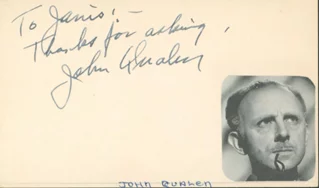 To Janis, -
Thanks for asking,
John Qualen
JOHN QUALEN